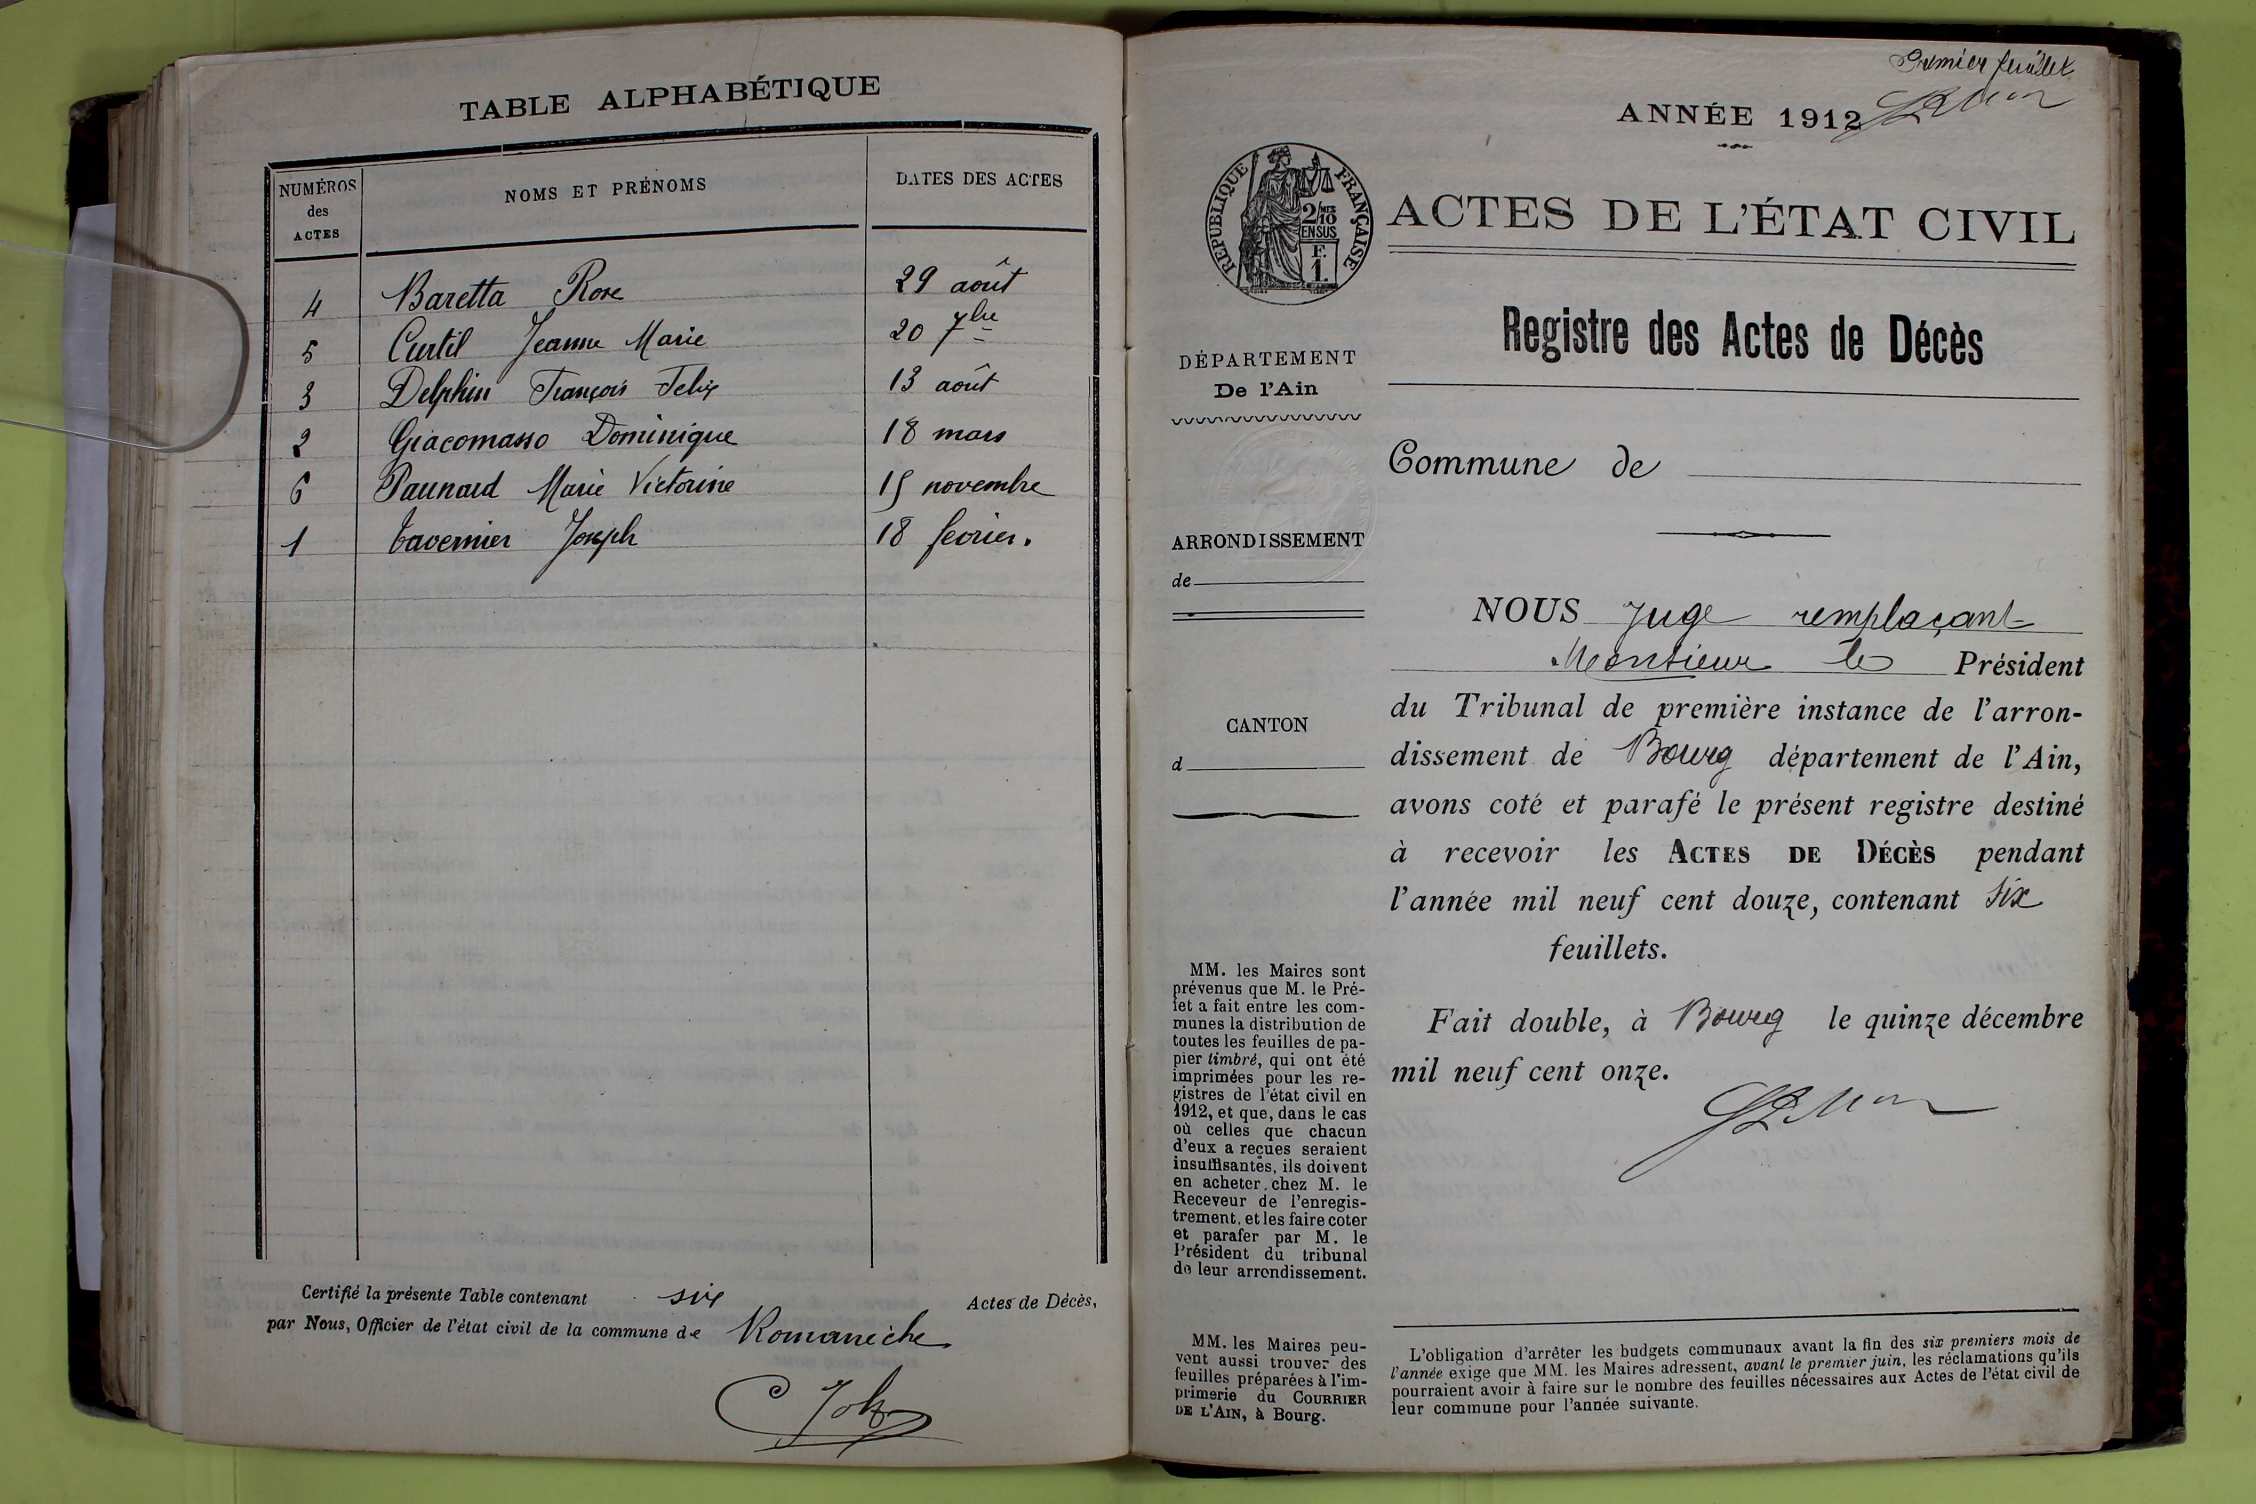 TABLE ALPHABÉTIQUE
NUMÉROS des ACTES
NOMS ET PRÉNOMS
DATES DES ACTES
4 Baretta Rose 29 août
5 Curtil Jeanne Marie 20 7bre
3 Delphin François Felix 13 août
2 Giacomasso Dominique 18 mars
6 Paunard Marie Victorine 15 novembre
1 Tavernier Joseph 18 fevrier.
Certifié la présente Table contenant six Actes de Décès,
par Nous, Officier de l'état civil de la commune de Romanèche
Premier feuillet
ANNÉE 1912
RÉPUBLIQUE FRANÇAISE
2/10 MES
EN SUS
F.
1.
ACTES DE L'ÉTAT CIVIL
Registre des Actes de Décès
DÉPARTEMENT
De l'Ain
Commune de
ARRONDISSEMENT
de
CANTON
d
NOUS Juge remplaçant
Monsieur le Président
du Tribunal de première instance de l'arron-
dissement de Bourg département de l'Ain,
avons coté et parafé le présent registre destiné
à recevoir les ACTES DE DÉCÈS pendant
l'année mil neuf cent douze, contenant six
feuillets.
Fait double, à Bourg le quinze décembre
mil neuf cent onze.
MM. les Maires sont
prévenus que M. le Pré-
fet a fait entre les com-
munes la distribution de
toutes les feuilles de pa-
pier timbré, qui ont été
imprimées pour les re-
gistres de l'état civil en
1912, et que, dans le cas
où celles que chacun
d'eux a reçues seraient
insuffisantes, ils doivent
en acheter chez M. le
Receveur de l'enregis-
trement, et les faire coter
et parafer par M. le
Président du tribunal
de leur arrondissement.
MM. les Maires peu-
vent aussi trouver des
feuilles préparées à l'im-
primerie du COURRIER
DE L'AIN, à Bourg.
L'obligation d'arrêter les budgets communaux avant la fin des six premiers mois de
l'année exige que MM. les Maires adressent, avant le premier juin, les réclamations qu'ils
pourraient avoir à faire sur le nombre des feuilles nécessaires aux Actes de l'état civil de
leur commune pour l'année suivante.